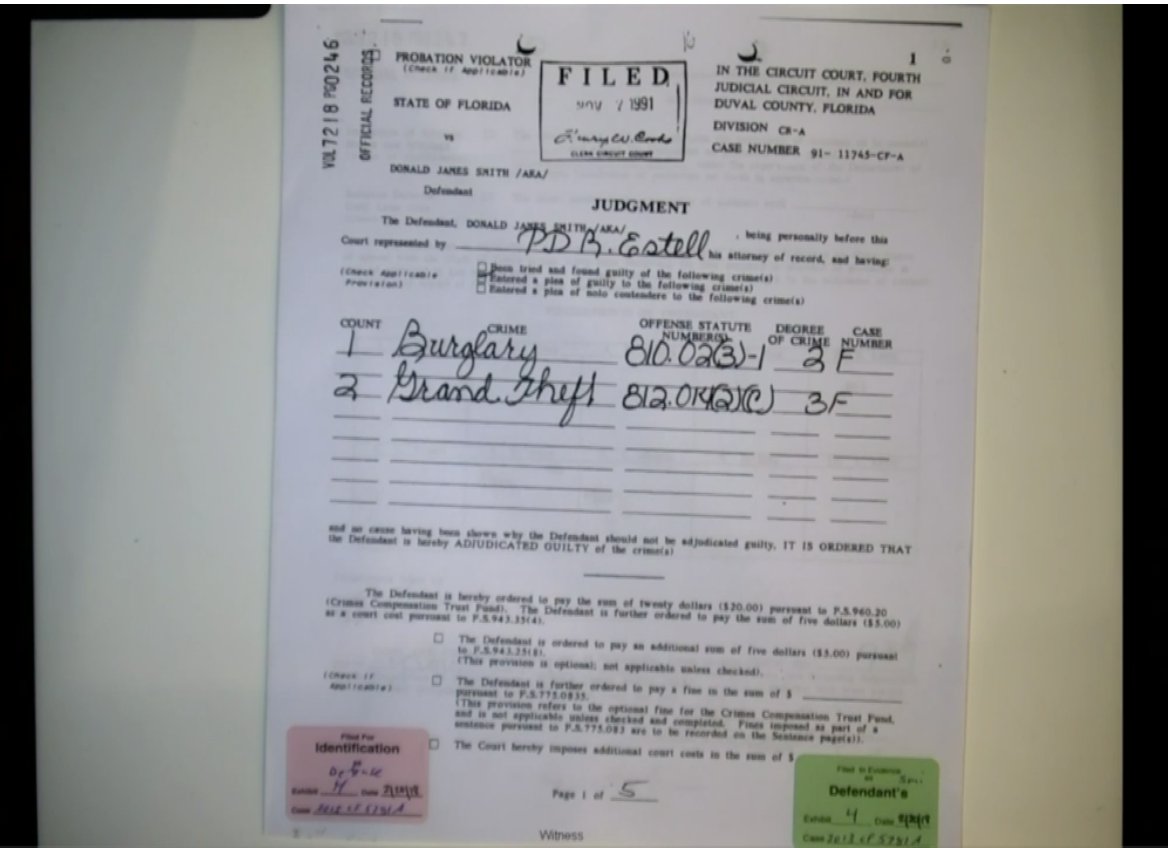 VOL 7218 PG 0246
OFFICIAL RECORDS
PROBATION VIOLATOR
(Check if Applicable)
STATE OF FLORIDA
vs
DONALD JAMES SMITH /AKA/
Defendant
FILED
1991
Henry W. Cook
CLERK CIRCUIT COURT
1
IN THE CIRCUIT COURT, FOURTH
JUDICIAL CIRCUIT, IN AND FOR
DUVAL COUNTY, FLORIDA
DIVISION CR-A
CASE NUMBER 91- 11745-CF-A
JUDGMENT
The Defendant, DONALD JAMES SMITH /AKA/ , being personally before this
Court represented by PD B. Estell his attorney of record, and having:
(Check Applicable
Provision)
Been tried and found guilty of the following crime(s)
Entered a plea of guilty to the following crime(s)
Entered a plea of nolo contendere to the following crime(s)
COUNT CRIME OFFENSE STATUTE NUMBER(S) DEGREE OF CRIME CASE NUMBER
1 Burglary 810.02(3)-1 F
2 Grand Theft 812.014(2)(C) 3F
and no cause having been shown why the Defendant should not be adjudicated guilty, IT IS ORDERED THAT
the Defendant is hereby ADJUDICATED GUILTY of the crime(s)
The Defendant is hereby ordered to pay the sum of twenty dollars ($20.00) pursuant to F.S.960.20
(Crimes Compensation Trust Fund). The Defendant is further ordered to pay the sum of five dollars ($5.00)
as a court cost pursuant to F.S.943.25(4).
The Defendant is ordered to pay an additional sum of five dollars ($5.00) pursuant
to F.S.943.25(8).
(This provision is optional; not applicable unless checked).
(Check if
Applicable)
The Defendant is further ordered to pay a fine in the sum of $
pursuant to F.S.775.0835.
(This provision refers to the optional fine for the Crimes Compensation Trust Fund,
and is not applicable unless checked and completed. Fines imposed as part of a
sentence pursuant to F.S.775.083 are to be recorded on the Sentence page(s)).
The Court hereby imposes additional court costs in the sum of $
Filed For
Identification
Defense
Exhibit Date
Case 2013 CF 5781 A
Page 1 of 5
Witness
Filed In Evidence
as
Defendant's
Exhibit 4 Date
Case 2013 CF 5781 A